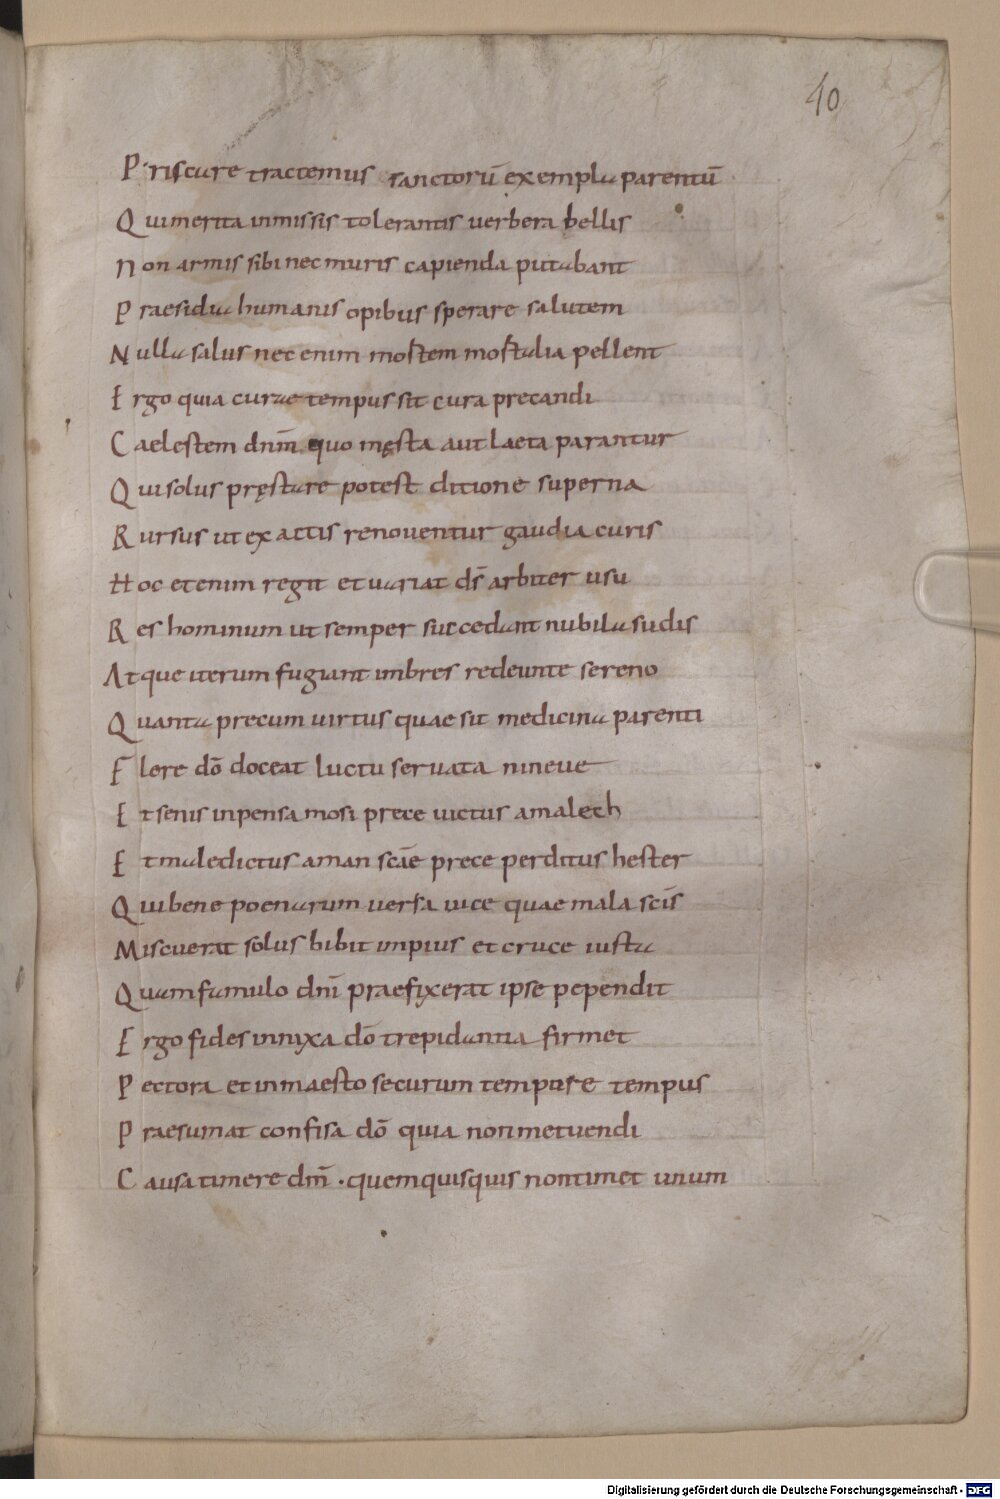 40
Priscure tractemus sanctorū exempla parentū
Qui merita inmissis tolerantis uerbera bellis
Non armis sibi nec muris capienda putabant
Praesidia humanis opibus sperare salutem
Nulla salus nec enim mostem mostalia pellent
Ergo quia curae tempus sit cura precandi
Caelestem dnm̄ quo męsta aut laeta parantur
Qui solus pręstare potest ditione superna
Rursus ut exactis renouentur gaudia curis
Hoc etenim regit et uariat ds̄ arbiter usu
Res hominum ut semper succedant nubila sudis
Atque iterum fugiant imbres redeunte sereno
Quanta precum uirtus quae sit medicina parenti
Flere dō doceat luctu seruata nineue
Et senis inpensa mosi prece uictus amalech
Et maledictus aman scāe prece perditus hester
Qui bene poenarum uersa uice quae mala scīs
Miscuerat solus bibit impius et cruce iusta
Quam famulo dnī praefixerat ipse pependit
Ergo fides innixa dō trepidantia firmet
Pectora et in maesto securum tempure tempus
Praesumat confisa dō quia non metuendi
Causa timere dnm̄ · quem quisquis non timet unum
Digitalisierung gefördert durch die Deutsche Forschungsgemeinschaft - DFG